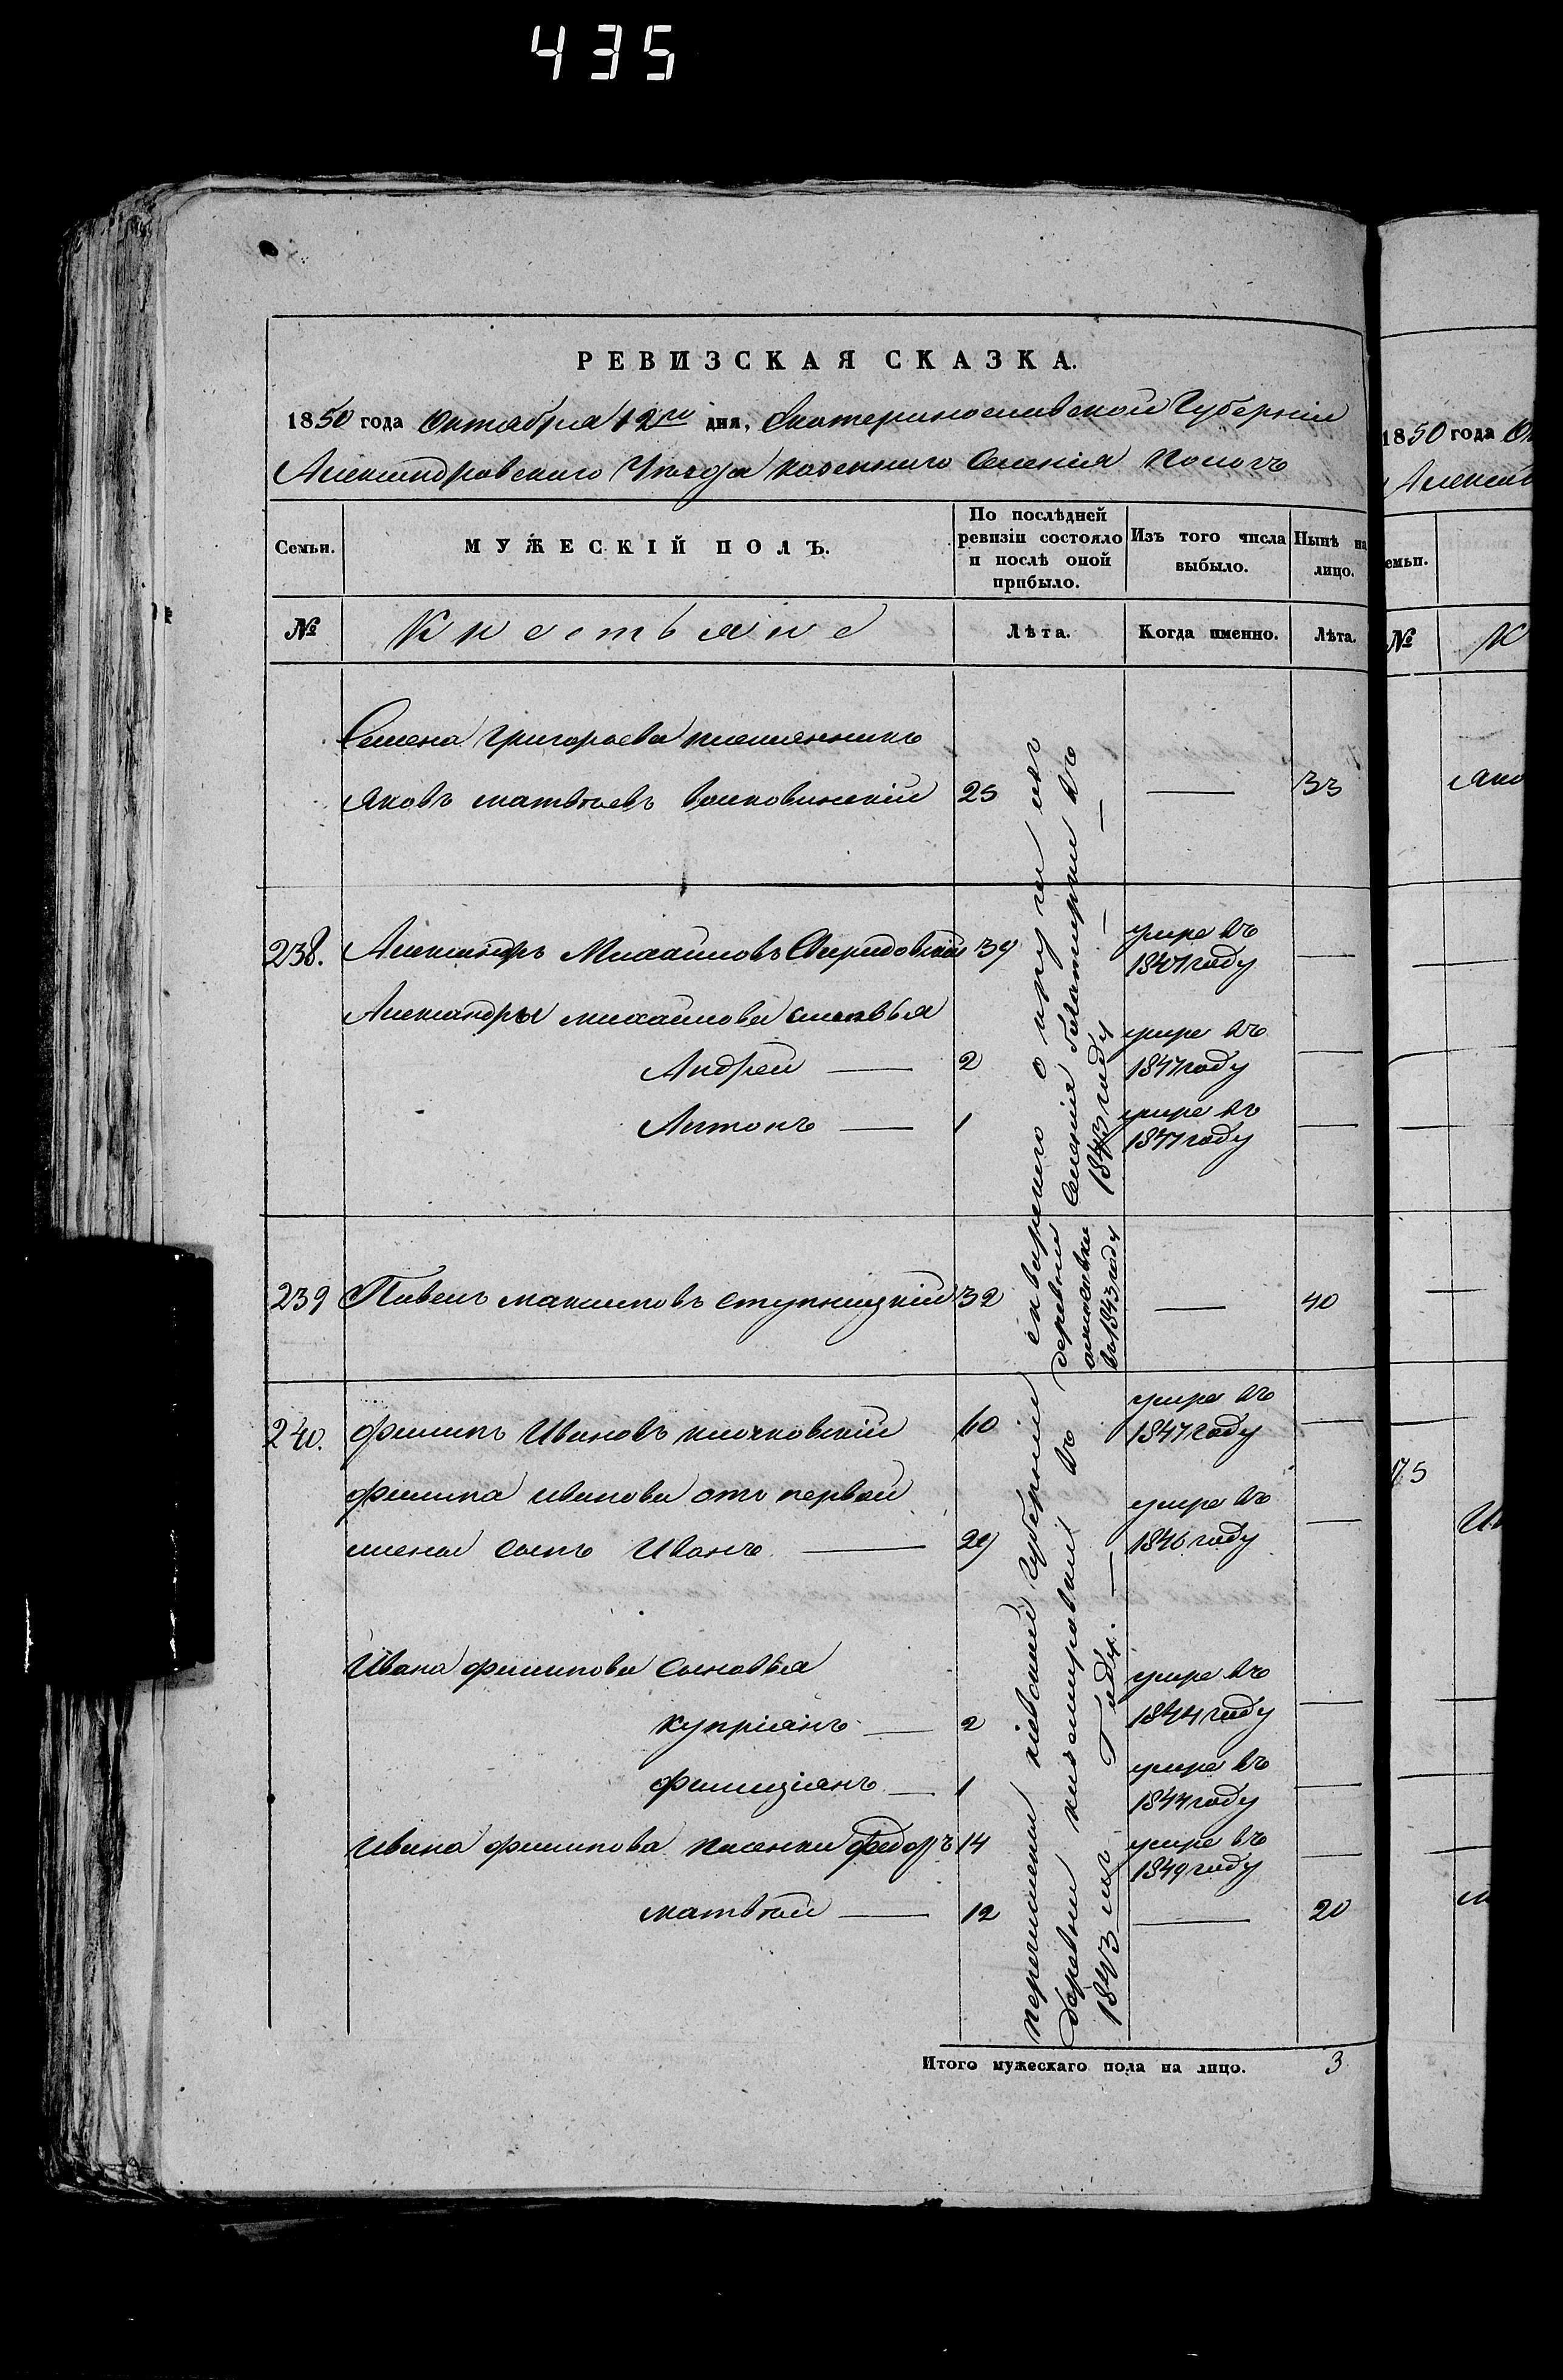 435
РЕВИЗСКАЯ СКАЗКА.
1850 года Октября 12го дня, Екатеринославской Губерніи
Александровскаго Уезда казеннаго Селенія Пологъ
Семьи.
МУЖЕСКІЙ ПОЛЪ.
По послѣдней ревизіи состояло и послѣ оной прибыло.
Изъ того числа выбыло.
Нынѣ на лицо.
№
Крестьяне
Лѣта.
Когда именно.
Лѣта.
Семена Григорьева племянникъ
Яковъ Матвѣевъ 25 — 33
238. Александръ Михайловъ Свиридовскій 39 умре въ 1847 году —
Александры Михайлова сыновья
Андрей — 2 умре въ 1847 году —
Антонъ — 1 умре въ 1847 году —
239 Павелъ Максимовъ Ступницкій 32 — 40
240. Филипъ Ивановъ Клочковскій 60 умре въ 1847 году —
Филипа Иванова отъ первой
жены сынъ Иванъ — 29 умре въ 1846 году —
Ивана Филипова сыновья
Купріянъ — 2 умре въ 1844 году —
1 умре въ 1844 году —
Ивана Филипова пасенки Федоръ 14 умре въ 1849 году —
Матвѣй — 12 — 20
перечислены Кіевской Губерніи
деревни въ
1843 мъ Году. —
округи изъ
деревни Селенія въ
1843 году — —
въ 1843 году
Итого мужескаго пола на лицо. 3
1850 года
емьи.
№
75